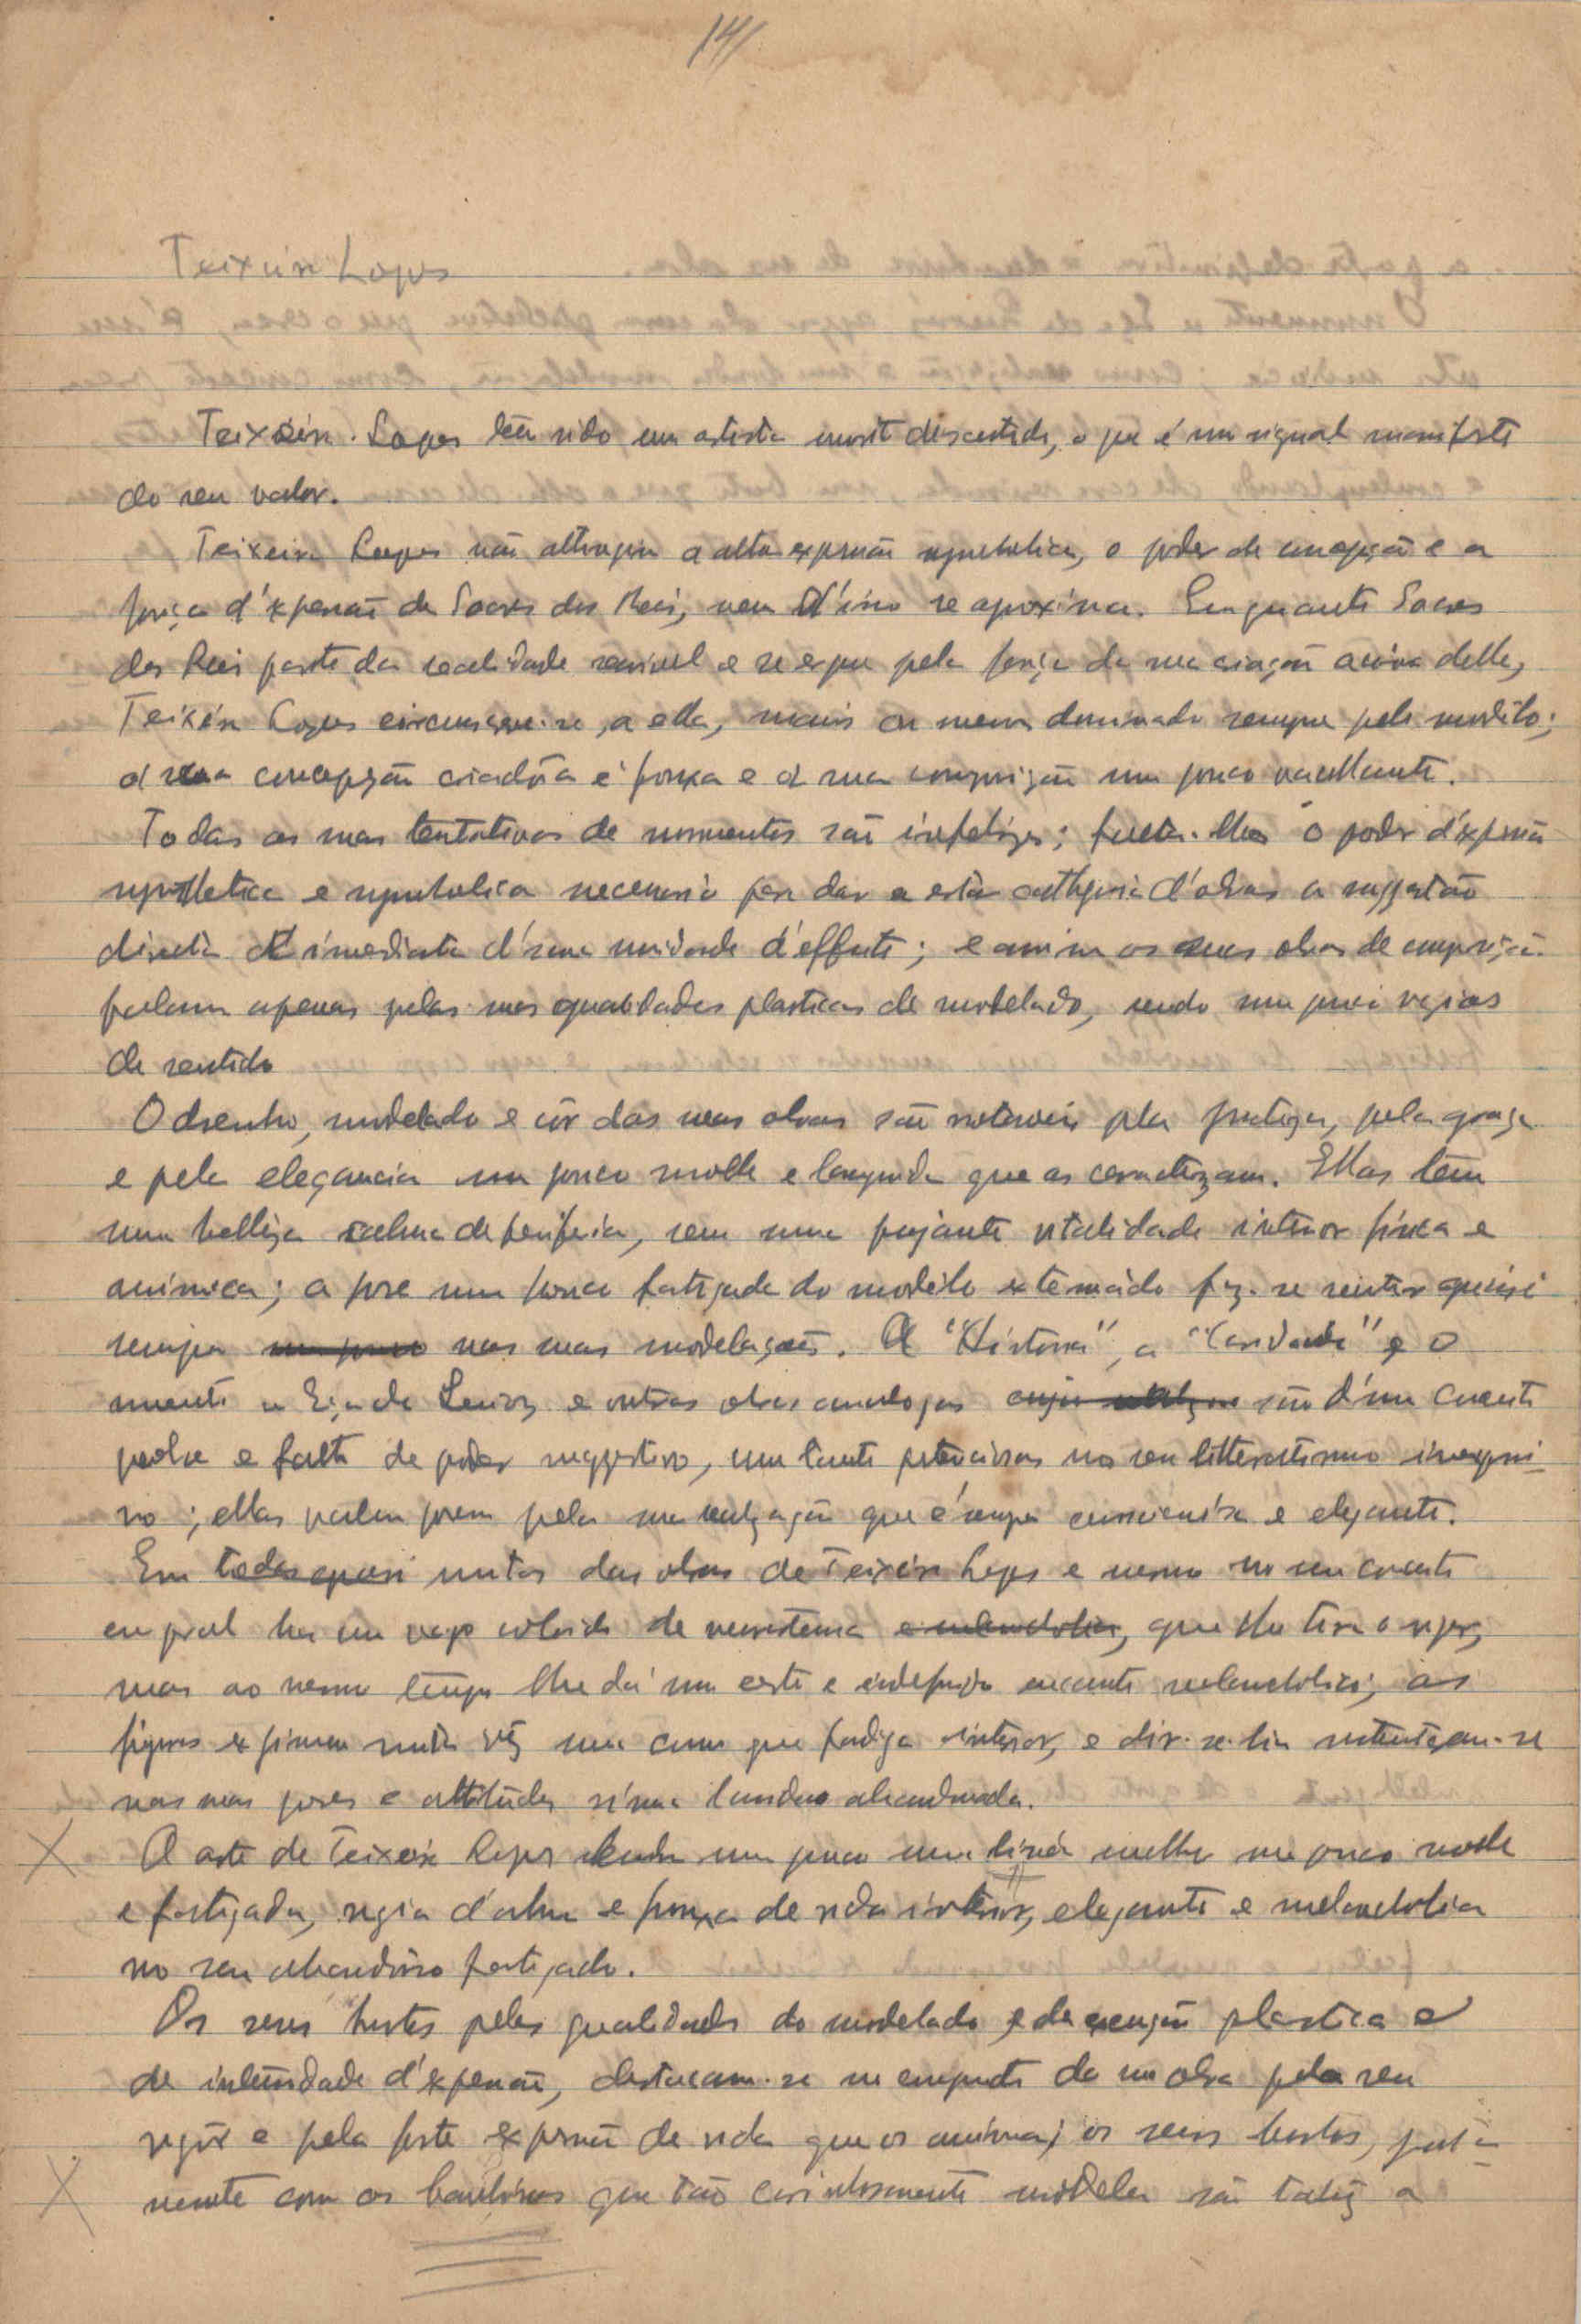 14
Teixeira Lopes
Teixeira Lopes tem sido um artista muito discutido, o que é um signal manifesto
do seu valor.
Teixeira Lopes não attingiu a alta expressão symbolica, o poder de concepção e a
força d'expressão de Soares dos Reis, nem d'isso se aproxima. Emquanto Soares
dos Reis parte da realidade sensivel e se ergue pela força da sua criação acima della,
Teixeira Lopes circunscreve-se a ella, mais ou menos dominado sempre pelo modêlo;
a sua concepção criadôra é frouxa e a sua composição um pouco vacillante.
Todas as suas tentativas de monumentos são infelizes; falta-lhes o poder d'expressão
synthetica e symbolica necessario para dar a esta cathegoria d'obras a suggestão
directa e immediata d'uma unidade d'effeito; e assim as suas obras de composição
falam apenas pelas suas qualidades plasticas de modelado, sendo um pouco vazias
de sentido
O desenho, modelado e côr das suas obras são notaveis pela justeza, pela graça
e pela elegancia um pouco molle e languida que as caracterizam. Ellas têm
uma belleza calma de periferia, sem uma pujante vitalidade interior fisica e
animica; a pose um pouco fatigada do modêlo extenuado faz-se sentir quasi
sempre um pouco nas suas modelações. A "Historia", a "Caridade" e o
mento a Eça de Queiroz e outras obras analogas cuja são d'um conceito
pobre e falta de poder suggestivo, um tanto pretenciosas no seu litteratismo inexpressi-
vo; ellas valem porem pela sua realização que é sempre conscienciosa e elegante.
Em todas quasi muitas das obras de Teixeira Lopes e mesmo no seu conceito
em geral ha um vago colorido de neurastenia e melancholia, que lhe tira o vigor,
mas ao mesmo tempo lhe dá um certo e indefinido encanto melancholico; as
figuras exprimem muita vêz uma como que fadiga interior, e dir-se-hia
nas suas poses e attitudes n'uma abandonada.
A arte de Teixeira Lopes lembra um pouco uma linda mulher um pouco molle
e fatigada, vazia d'alma e frouxa de vida interior, elegante e melancholica
no seu abandôno fatigado.
Os seus bustos pelas qualidades do modelado e da execução plastica e
de intensidade d'expressão, destacam-se no conjuncto da sua obra pelo seu
vigôr e pela forte expressão de vida que os anima; os seus bustos, justa-
mente com os bambinos que tão carinhosamente modela são talvêz a